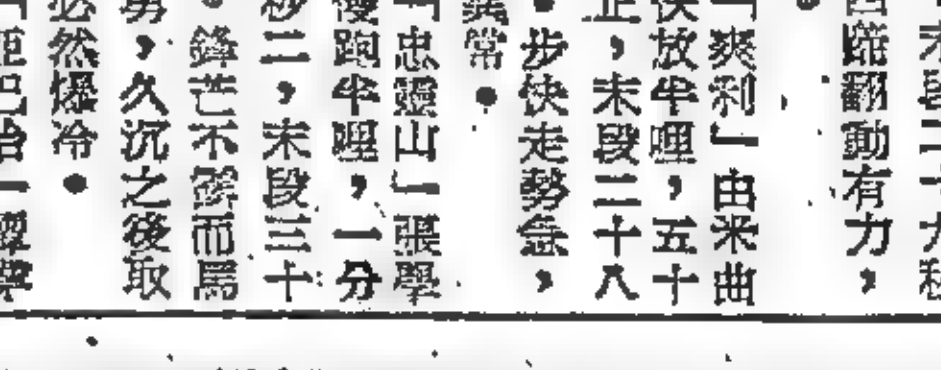 末段二十九秒
四蹄翻動有力，
「爽利」由米曲
快放半哩，五十
正，末段二十八
步快走勢急，
異常。
「忠靈山」張學
慢跑半哩，一分
秒二，末段三十
鋒芒不 而馬
勇，久沉之後取
必然爆冷。